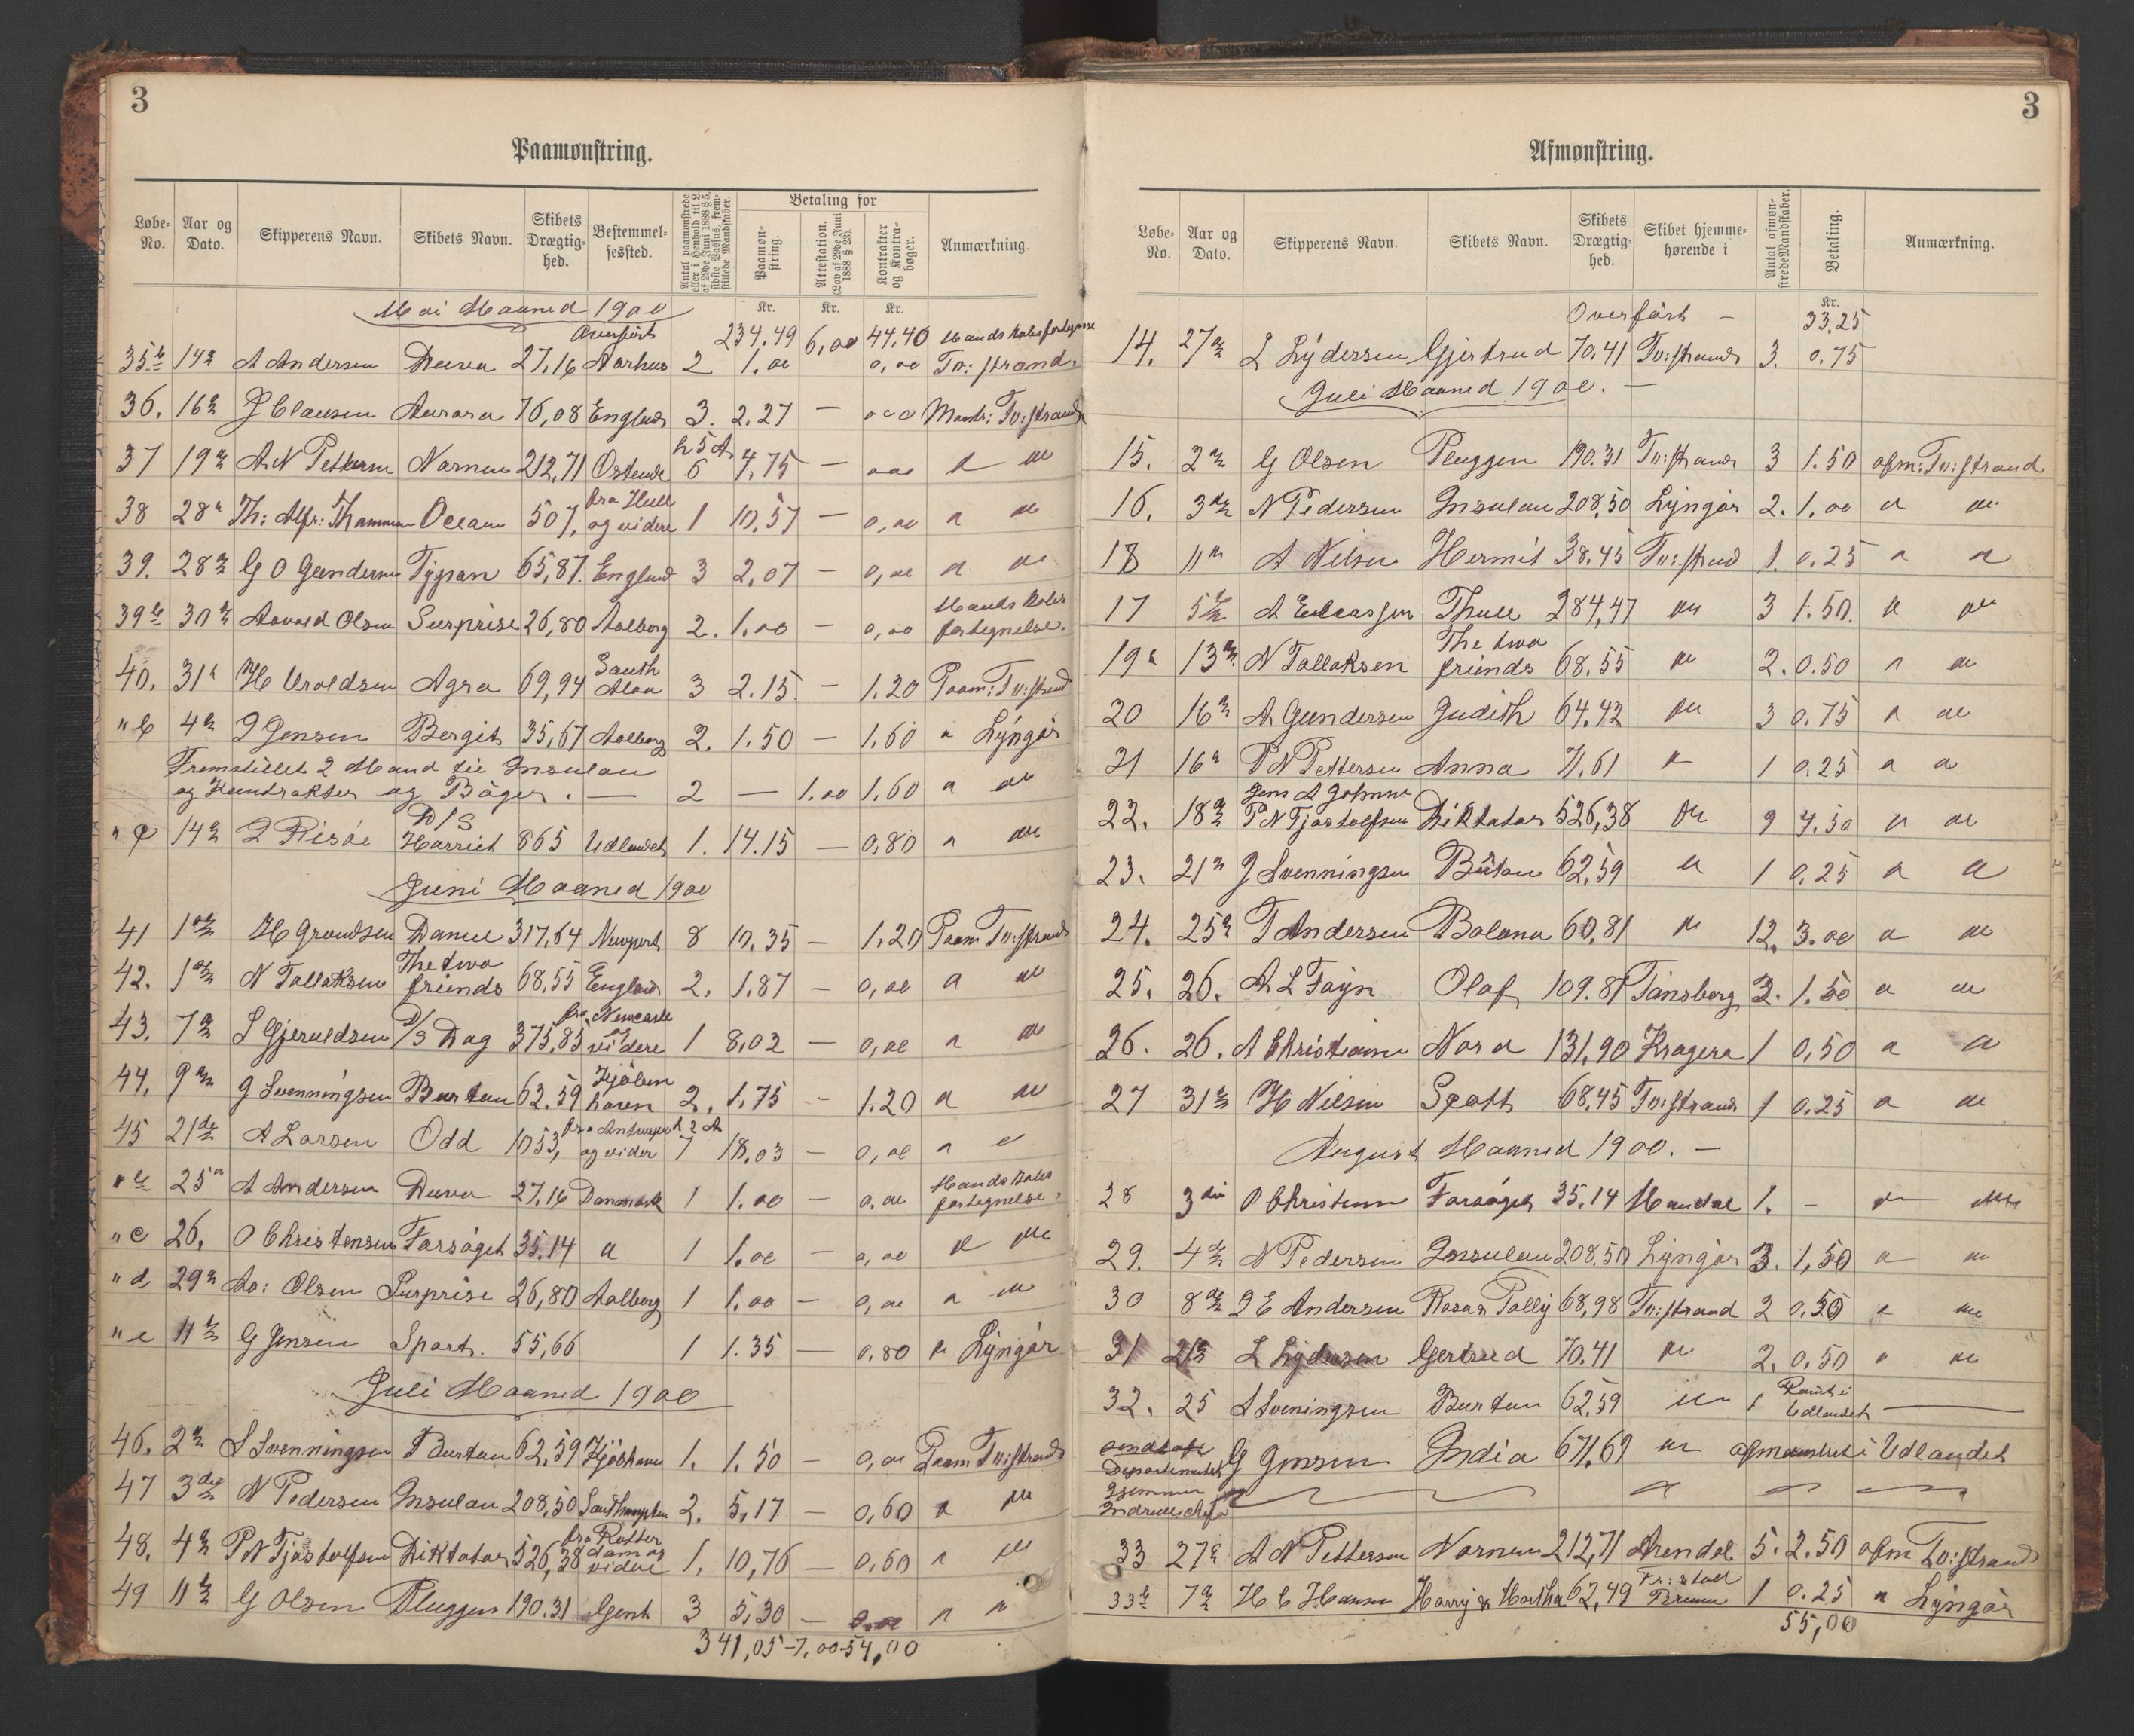 3
Paamønstring.
Løbe-No. Aar og Dato. Skipperens Navn. Skibets Navn. Skibets Drægtig-hed. Bestemmel-sessted. Antal paamønstrede eller i Henhold til L. af 29de Juni 1888 § 5, sidste Passus, frem-stillede Mandskaber. Betaling for Paamøn-string. Attestation. (Lov af 29de Juni 1888 § 23). Kontrakter og Kontra-bøger. Anmærkning.
Kr. Kr. Kr.
Mai Maaned 1900
Overført 234.49 6,00 44,40 Mandskabsfortegnelse
35 b 14de A Andersen Duva 27,16 Aarhus 2 1.00 0,00 Tv:strand
36. 16de J Clausen Aurora 76,08 England 3. 2.27 — 000 Mønst: Tv:strand
37 19de A N Pettersen Nornen 212,71 Ostende h 5 A 6 4.75 — 000 " "
38 28de Th: Alfr: Thommesen Ocean 507, fra Hull og videre 1 10,57 — 0,00 " "
39. 28de G O Gundersen Tÿgran 65,87. England 3 2,07 — 0,00 " "
39 b 30te Aavald Olsen Surprise 26,80 Aalborg 2. 1.00 — 0,00 Mandskabsfortegnelse.
40. 31te H Uroldsen Agra 69,94 South Aloa 3 2.15. — 1.20 Paam: Tv:strand
" b 4de J Jensen Bergit 35,67 Aalborg 2. 1.50 — 1.60 " Lÿngør
Fremstillet 2 Mand til Insulan
og Kontrakter og Bøger. — 2 — 1.00 1.60 " "
" c 14de J Risøe D/S Harriet 865 Udlandet 1. 14.15 — 0,80 " "
Juni Maaned 1900
41 1ste H Grondsen Daniel 317,64 Newport 8 10,35 — 1.20 Paam Tv:strand
42. 1ste N Tallaksen The two friends 68,55 England 2. 1,87 — 0,00 " "
43. 7de S Gjeruldsen D/S Dag 375,85 fra Newcastle og videre 1 8,02 — 0,00 " "
44. 9de J Svenningsen Burton 62.59 Kjøbenhavn 2. 1.75 — 1.20 " "
45 21de A Larsen Odd 1053, fra Antwerpen og vider h 2 A 7 18,03 — 0,00 " "
" b 25de A Andersen Duva 27,16 Danmark 1 1.00 — 0.00 Mandskabsfortegnelse.
" c 26. O Christensen Forsøget 35.14 " 1 1.00 — 0,00 " "
" d 29de Aa: Olsen Surprise 26,80 Aalborg 1 1.00 — 0,00 " "
" e 11te G Jensen Sport. 55,66 1 1.35 — 0.80 " Lÿngør
Juli Maaned 1900
46. 2de S Svenningsen Burton 62,59 Kjøbhavn 1. 1.50 — 0,00 Paam Tv:strand
47 3die N Pedersen Insulan 208,50 Southampton 2. 5,17 — 0,60 " "
48. 4de P N Fjøstolfsen Diktator 526,38 fra Rotterdam og videre 1. 10,76 — 0,60 " "
49 11te G Olsen Pluggen 190.31 Gent 3 5,30 — 0.00 " "
341,05 - 7.00 - 54,00
3
Afmønstring.
Løbe-No. Aar og Dato. Skipperens Navn. Skibets Navn. Skibets Drægtig-hed. Skibet hjemme-hørende i Antal afmøn-strede Mandskaber. Betaling. Anmærkning.
Kr.
Overført — 33.25
14. 27de L Lÿdersen Gjertrud 70,41 Tv:strand 3. 0.75
Juli Maaned 1900. —
15. 2de G Olsen Pluggen 190.31 Tv:strand 3 1.50 afm: Tv:strand
16. 3die N Pedersen Insulan 208,50 Lÿngør 2. 1.00 " "
18 11te A Nilsen Hermit 38.45 Tv:strand 1. 0.25 " "
17 5te A Eliassen Thule 284,47 " 3 1.50. " "
19 13de N Tallaksen The two friends 68.55 " 2. 0.50 " "
20 16de A Gundersen Judith 64.42 " 3 0.75 " "
21 16de P N Pettersen Anna 71.61 " 1 0.25 " "
22. 18de Jens A Johnsen P N Fjøstolfsen Diktator 526,38 " 9 4.50 " "
23. 21de J Svenningsen Burton 62,59 " 1 0,25 " "
24. 25de T Andersen Balana 60,81 " 12. 3.00 " "
25. 26. A L Føyn Olaf 109.81 Tønsberg 3. 1.50 " "
26. 26. A Christiansen Nora 131.90 Kragerø 1 0,50 " "
27 31te H Nilsen Spott 68,45 Tv:strand 1 0.25 " "
August Maaned 1900. —
28 3die O Christensen Forsøget 35.14 Mandal 1. — " "
29. 4de N Pedersen Insulan 208.50 Lÿngør 3. 1,50 " "
30 8de J E Andersen Rosa & Polly 68,98 Tv:strand 2 0.50 " "
31 21de L Lÿdersen Gertrud 70.41 " 2. 0.50 " "
32. 25 S Sveningsen Burton 62,59 " 1 Rømt i Udlandet —
Departementet G Jensen India 671.69 " afmønstret i Udlandet
33 27de A N Pettersen Nornen 212,71 Arendal 5. 2.50 afm Tv:strand
33 b 7de H C Hansen Harry & Martha 62,49 1 0.25 " Lÿngør
55,00